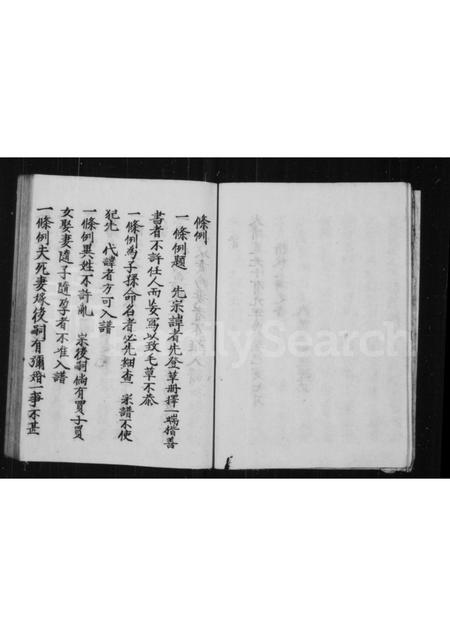 條例
一條例題 先宗諱者先登草冊擇一端楷善
書者不許任人而妄寫以致毛草不恭
一條例為子孫命名者必先細查 宗譜不使
犯先 代諱者方可入譜
一條例異姓不許亂 宗後嗣倘有買子買
女娶妻隨子隨孕者不准入譜
一條例夫死妻嫁後嗣有彌婚一事不甚
FamilySearch